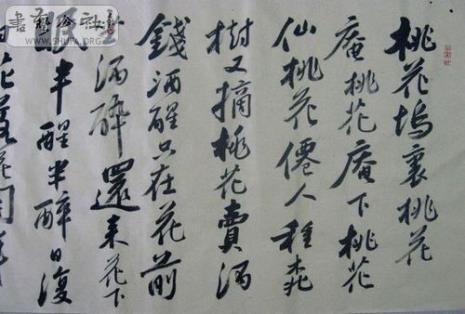 桃花塢裏桃花
庵桃花庵下桃花
仙桃花僊人種桃
樹又摘桃花賣酒
錢酒醒只在花前
酒醉還來花下
半醒半醉日復
花落花開年